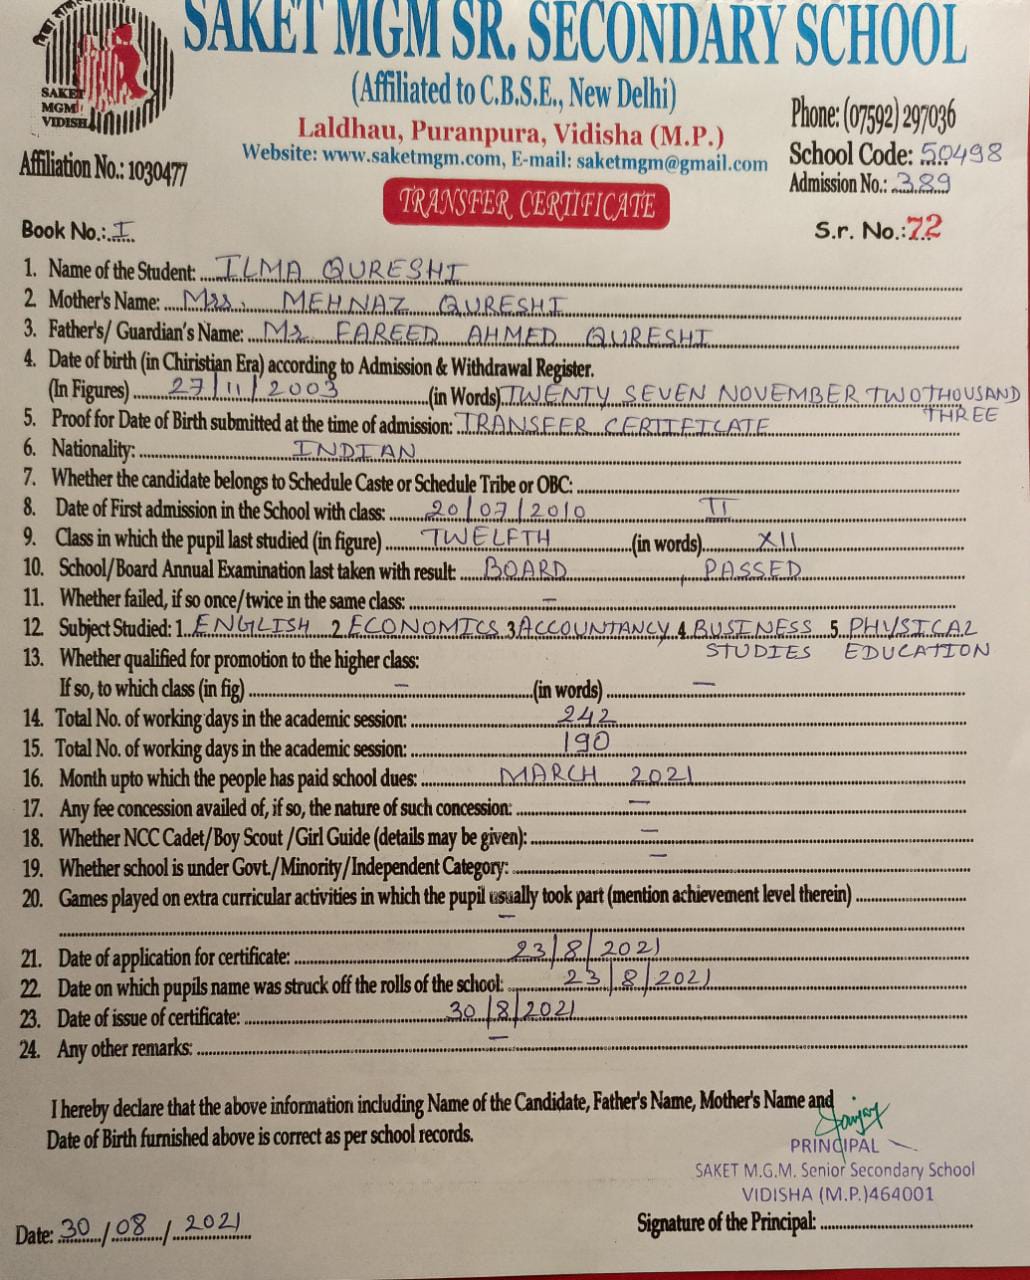 SAKET MGM SR. SECONDARY SCHOOL
(Affiliated to C.B.S.E., New Delhi)
SAKET
MGM
VIDISHA
Laldhau, Puranpura, Vidisha (M.P.)
Phone: (07592) 297036
Website: www.saketmgm.com, E-mail: saketmgm@gmail.com
School Code: 50498
Affiliation No.: 1030477
Admission No.: 389
TRANSFER CERTIFICATE
Book No.: I
S.r. No.: 72
1. Name of the Student: ILMA QURESHI
2. Mother's Name: Mrs. MEHNAZ QURESHI
3. Father's/ Guardian's Name: Mr. FAREED AHMED QURESHI
4. Date of birth (in Chiristian Era) according to Admission & Withdrawal Register.
(In Figures) 27/11/2003 (in Words) TWENTY SEVEN NOVEMBER TWO THOUSAND
THREE
5. Proof for Date of Birth submitted at the time of admission: TRANSFER CERTIFICATE
6. Nationality: INDIAN
7. Whether the candidate belongs to Schedule Caste or Schedule Tribe or OBC:
8. Date of First admission in the School with class: 20/07/2010 II
9. Class in which the pupil last studied (in figure) TWELFTH (in words) XII
10. School/Board Annual Examination last taken with result: BOARD, PASSED
11. Whether failed, if so once/twice in the same class: –
12. Subject Studied: 1. ENGLISH 2. ECONOMICS 3. ACCOUNTANCY 4. BUSINESS 5. PHYSICAL
STUDIES EDUCATION
13. Whether qualified for promotion to the higher class:
If so, to which class (in fig) – (in words) –
14. Total No. of working days in the academic session: 242
15. Total No. of working days in the academic session: 190
16. Month upto which the people has paid school dues: MARCH 2021
17. Any fee concession availed of, if so, the nature of such concession: –
18. Whether NCC Cadet/Boy Scout /Girl Guide (details may be given): –
19. Whether school is under Govt./Minority/Independent Category: –
20. Games played on extra curricular activities in which the pupil usually took part (mention achievement level therein)
–
21. Date of application for certificate: 23/8/2021
22. Date on which pupils name was struck off the rolls of the school: 23/8/2021
23. Date of issue of certificate: 30/8/2021
24. Any other remarks: –
I hereby declare that the above information including Name of the Candidate, Father's Name, Mother's Name and
Date of Birth furnished above is correct as per school records.
PRINCIPAL
SAKET M.G.M. Senior Secondary School
VIDISHA (M.P.)464001
Date: 30/08/2021
Signature of the Principal: